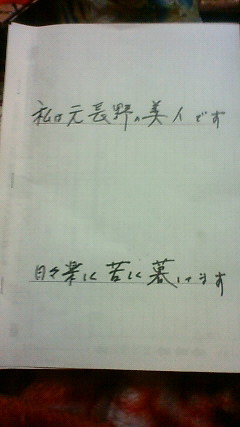 私は元長野の美人です
日々楽しく苦しく暮してます